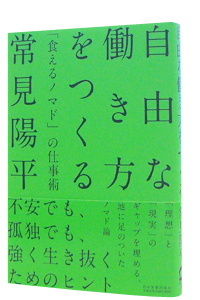 自由な
働き方
をつくる
「食えるノマド」の仕事術
常見陽平
「理想」と
「現実」の
ギャップを埋める
地に足のついた
ノマド論
不安でも、
孤独でも、
強く生き抜く
ためのヒント